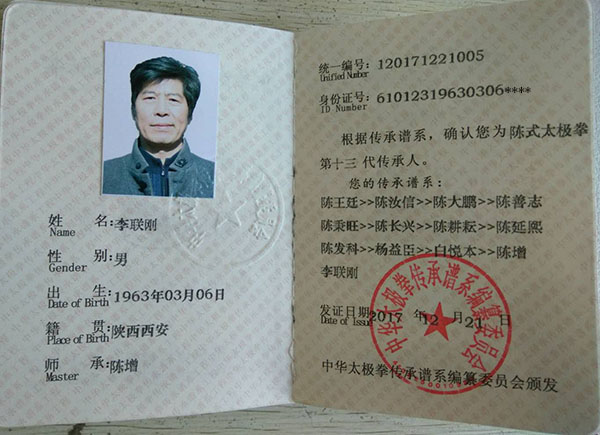 姓 名:李联刚
Name
性 别:男
Gender
出 生:1963年03月06日
Date of Birth
籍 贯:陕西西安
Place of Birth
师 承:陈增
Master
统一编号:120171221005
Unified Number
身份证号:61012319630306****
ID Number
根据传承谱系，确认您为陈式太极拳
第十三 代传承人。
您的传承谱系：
陈王廷>>陈汝信>>陈大鹏>>陈善志
陈秉旺>>陈长兴>>陈耕耘>>陈延熙
陈发科>>杨益臣>>白悦本>>陈增
李联刚
发证日期:2017 年 12 月 21 日
Date of Issue
中华太极拳传承谱系编纂委员会
中华太极拳传承谱系编纂委员会颁发